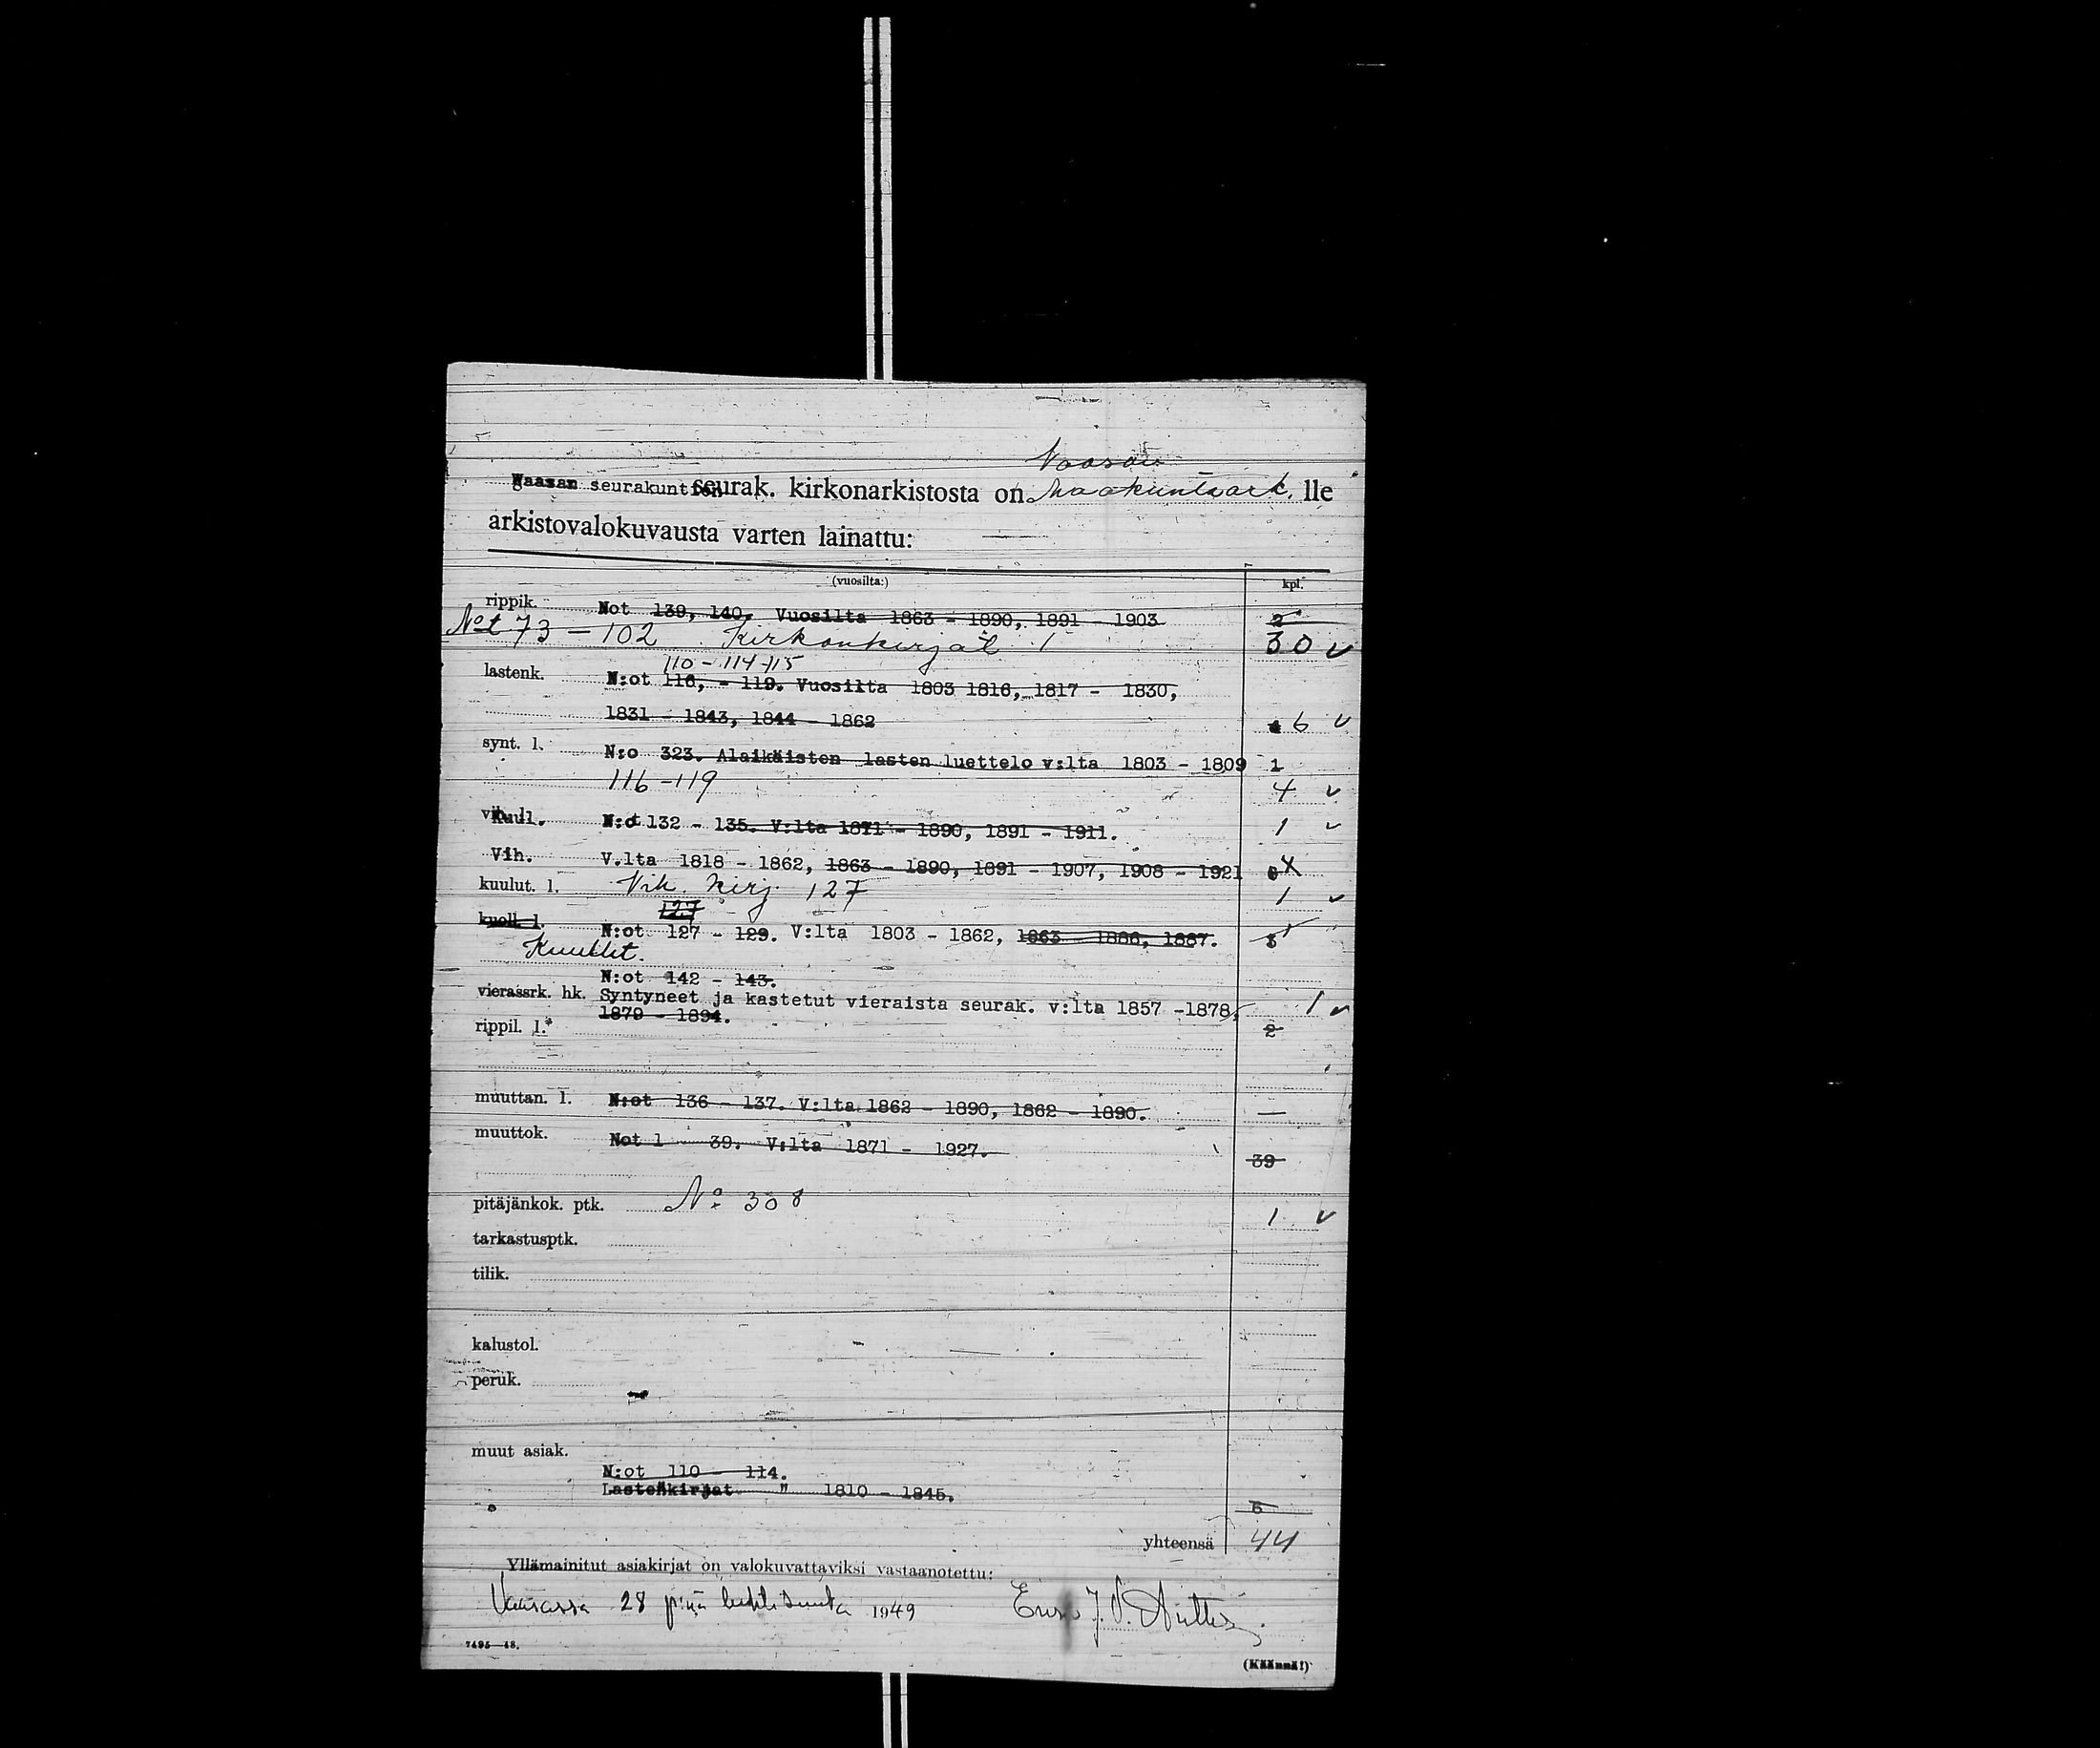 Vaasan
Waasan seurakuntien seurak. kirkonarkistosta on Maakuntaark. lle
arkistovalokuvausta varten lainattu:
(vuosilta:) kpl.
rippik. Not 139, 140. Vuosilta 1863 - 1890, 1891 - 1903 2
Not 73 - 102 Kirkonkirjat 30 ✓
110 - 114-115
lastenk. N:ot 116, - 119. Vuosilta 1803 1816, 1817 - 1830,
1831 - 1843, 1844 - 1862 6 ✓
synt. l. N:o 323. Alaikäisten lasten luettelo v:lta 1803 - 1809 1
116 - 119 4 ✓
Kuul. N:o 132 - 135. V:lta 1871 - 1890, 1891 - 1911. 1 ✓
Vih. V.lta 1818 - 1862, 1863 - 1890, 1891 - 1907, 1908 - 1921
kuulut. l. Vih. kirj. 127 1 ✓
127
kuoll. l. N:ot 127 - 129. V:lta 1803 - 1862, 1863 - 1886, 1887. 3
N:ot 142 - 143.
vierassrk. hk. Syntyneet ja kastetut vieraista seurak. v:lta 1857 -1878, 1 ✓
1879 - 1894.
rippil. l. 2
muuttan. l. N:ot 136 - 137. V:lta 1862 - 1890, 1862 - 1890. —
muuttok. Not 1 - 39. V:lta 1871 - 1927.
39
pitäjänkok. ptk. No 308 1 ✓
tarkastusptk.
tilik.
kalustol.
peruk.
muut asiak.
N:ot 110 - 114.
Lastenkirjat " 1810 - 1845.
5
yhteensä 44
Yllämainitut asiakirjat on valokuvattaviksi vastaanotettu:
Vaasassa 28 p:nä huhtikuuta 1949
7495—48.
(Käännä!)